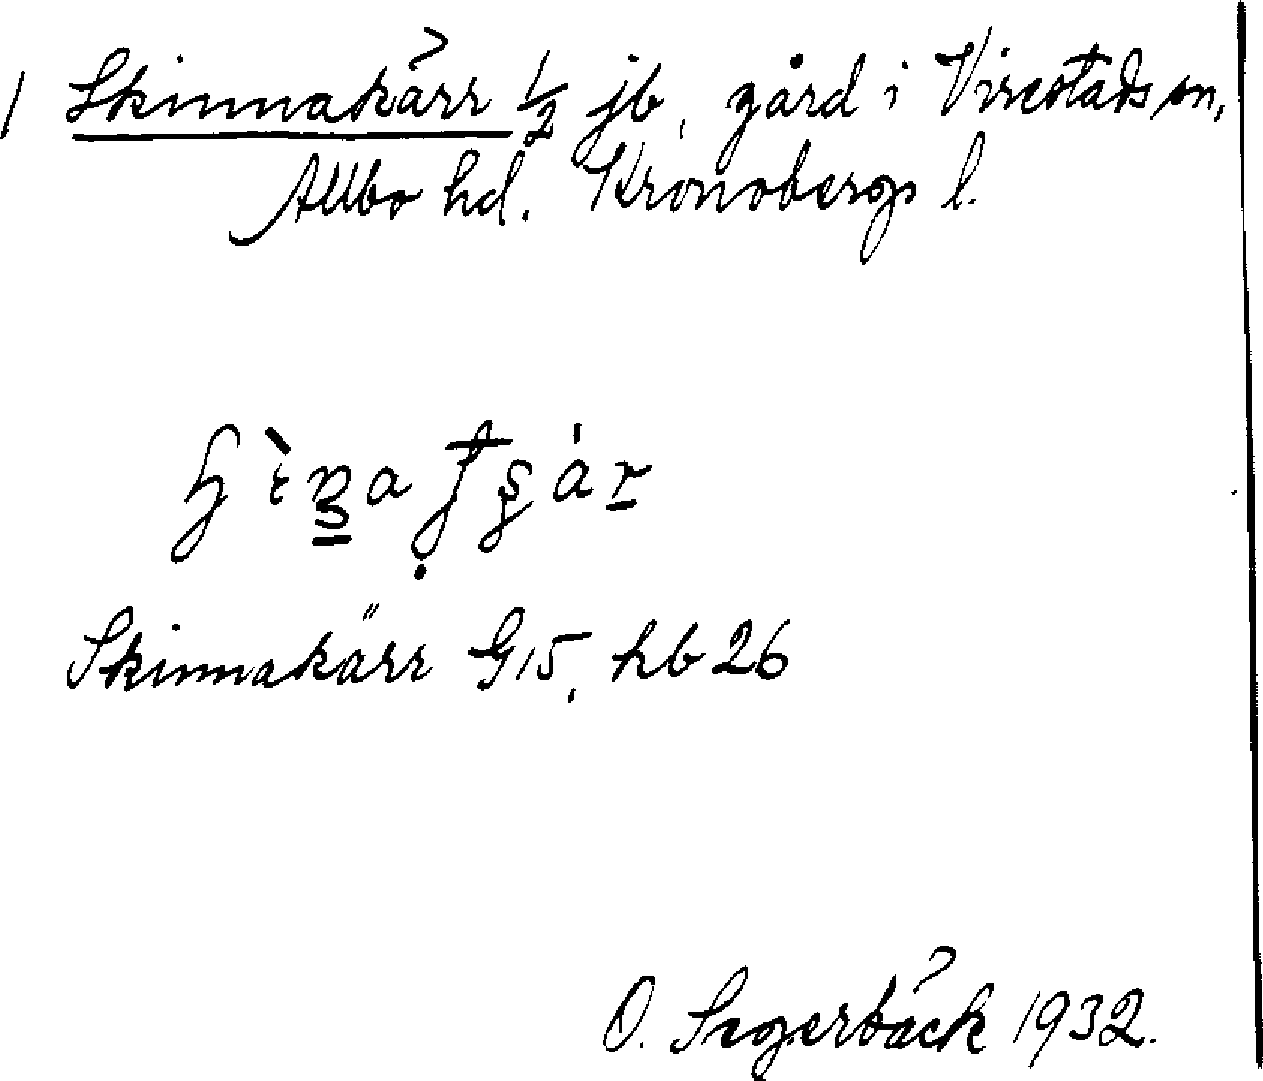 1 Skinnakärr ½ jb, gård i Virestads sn,
Allbo hd. Kronobergs l.
Skinnakärr G15, hb 26
O. Segerbäck 1932.